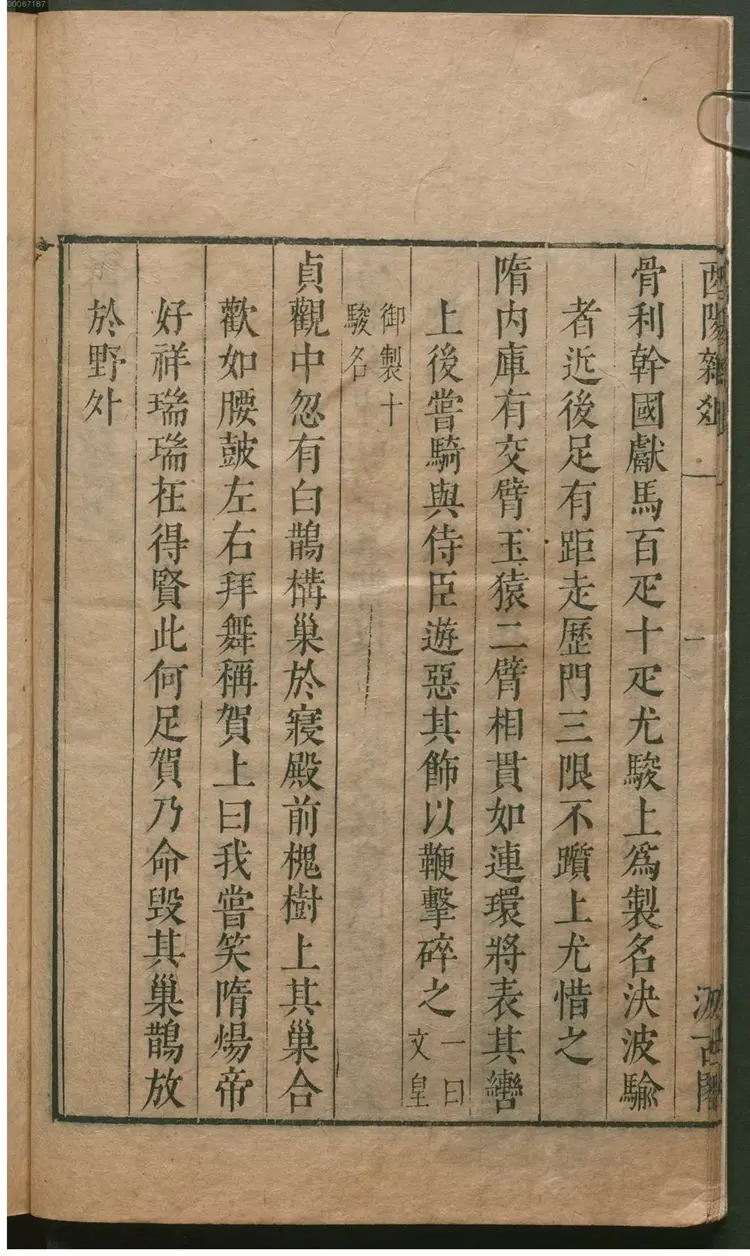 00067187
酉陽雜俎
一
汲古閣
骨利幹國獻馬百疋十疋尤駿上爲製名決波騟
者近後足有距走歷門三限不躓上尤惜之
隋内庫有交臂玉猿二臂相貫如連環將表其轡
上後嘗騎與侍臣遊惡其飾以鞭擊碎之
一曰
文皇
御製十
駿名
貞觀中忽有白鵲構巢於寢殿前槐樹上其巢合
歡如腰皷左右拜舞稱賀上曰我嘗笑隋煬帝
好祥瑞瑞在得賢此何足賀乃命毀其巢鵲放
於野外